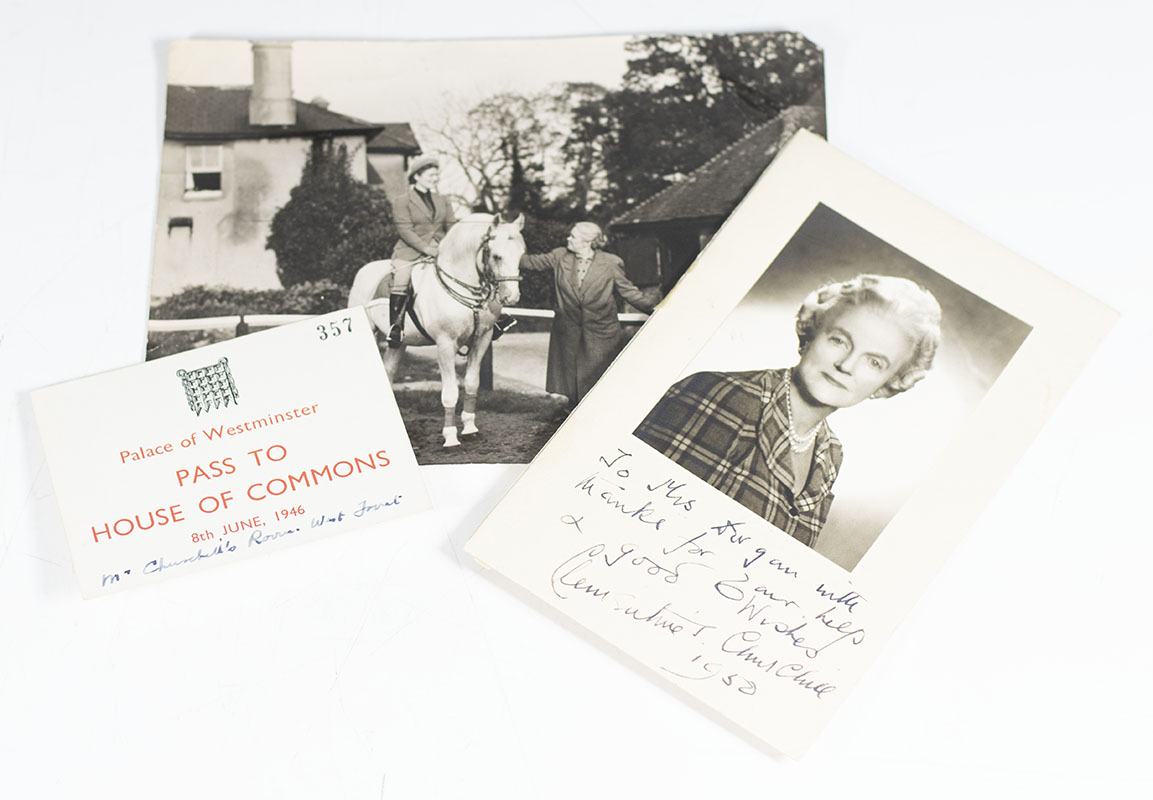 357
Palace of Westminster
PASS TO
HOUSE OF COMMONS
8th JUNE, 1946
Mr Churchill's Room. West Front
To Mrs Durgan with
thanks for Your help
& Good Wishes
Clementine S. Churchill
1950